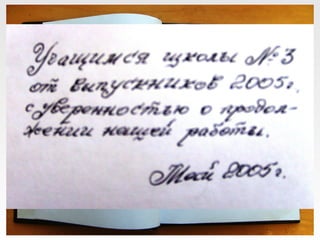 Учащимся школы № 3
от выпускников 2005г.
с уверенностью о продол-
жении нашей работы.
Май 2005г.